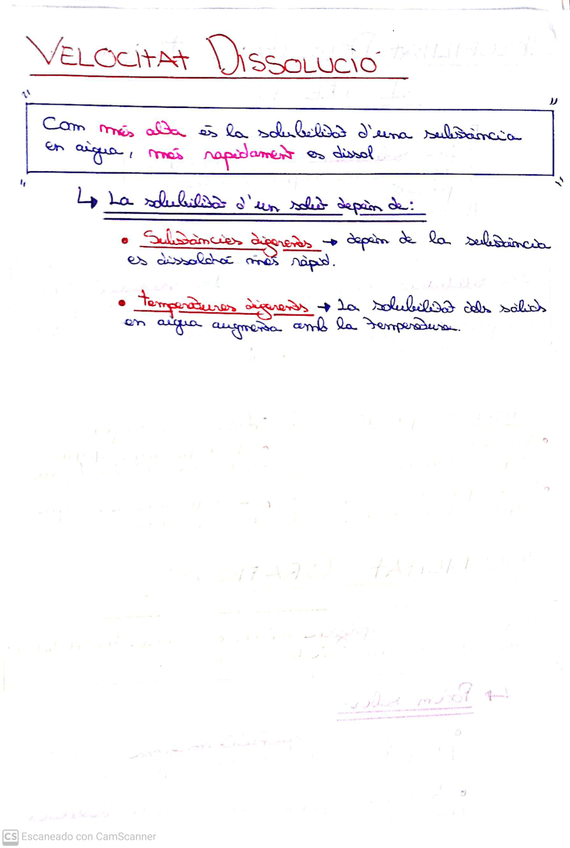 VELOCITAT DISSOLUCIÓ
Com més alta és la solubilitat d'una substància
en aigua, més rapidament es dissol
↳ La solubilitat d'un solut depèn de:
• Substàncies diferents → depèn de la substància
es dissoldrà més ràpid.
• Temperatures diferents → La solubilitat dels sòlids
en aigua augmenta amb la temperatura.
CS Escaneado con CamScanner